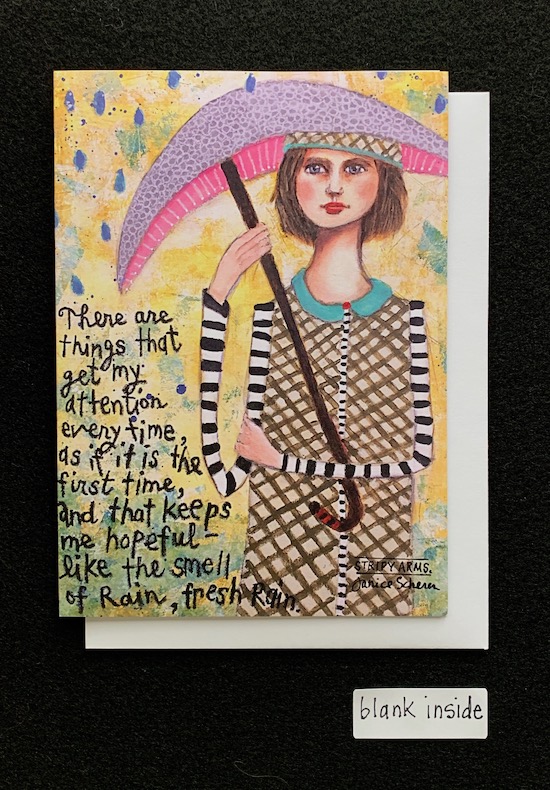 There are
things that
get my
attention
every time,
as if it is the
first time,
and that keeps
me hopeful-
like the smell
of Rain, fresh Rain.
STRIPY ARMS.
Janice Scherer
blank inside